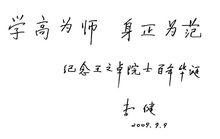 学高为师 身正为范
纪念王之卓院士百年华诞
李健
2009.9.9